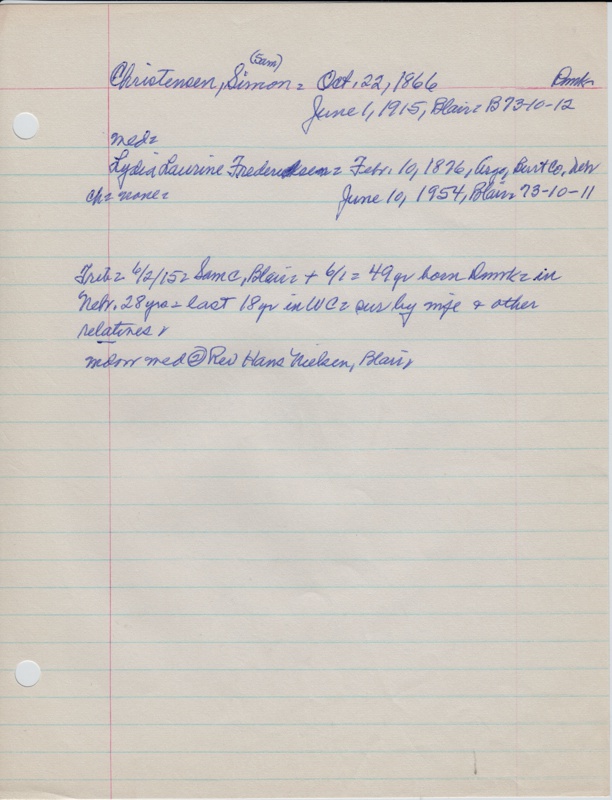 (Sam)
Christensen, Simon = Oct. 22, 1866 Dmk
June 1, 1915, Blair = B73-10-12
med=
Lydia Laurine Fredericksen = Febr. 10, 1876, Argo, Burt Co, Neb
ch= none= June 10, 1954, Blair= 73-10-11
Trib= 6/2/15= Sam C, Blair= + 6/1= 49 yr born Dmk= in
Nebr. 28 yrs= last 18 yr in WC= sur by wife & other
relatives
widow med @ Rev Hans Nielsen, Blair,